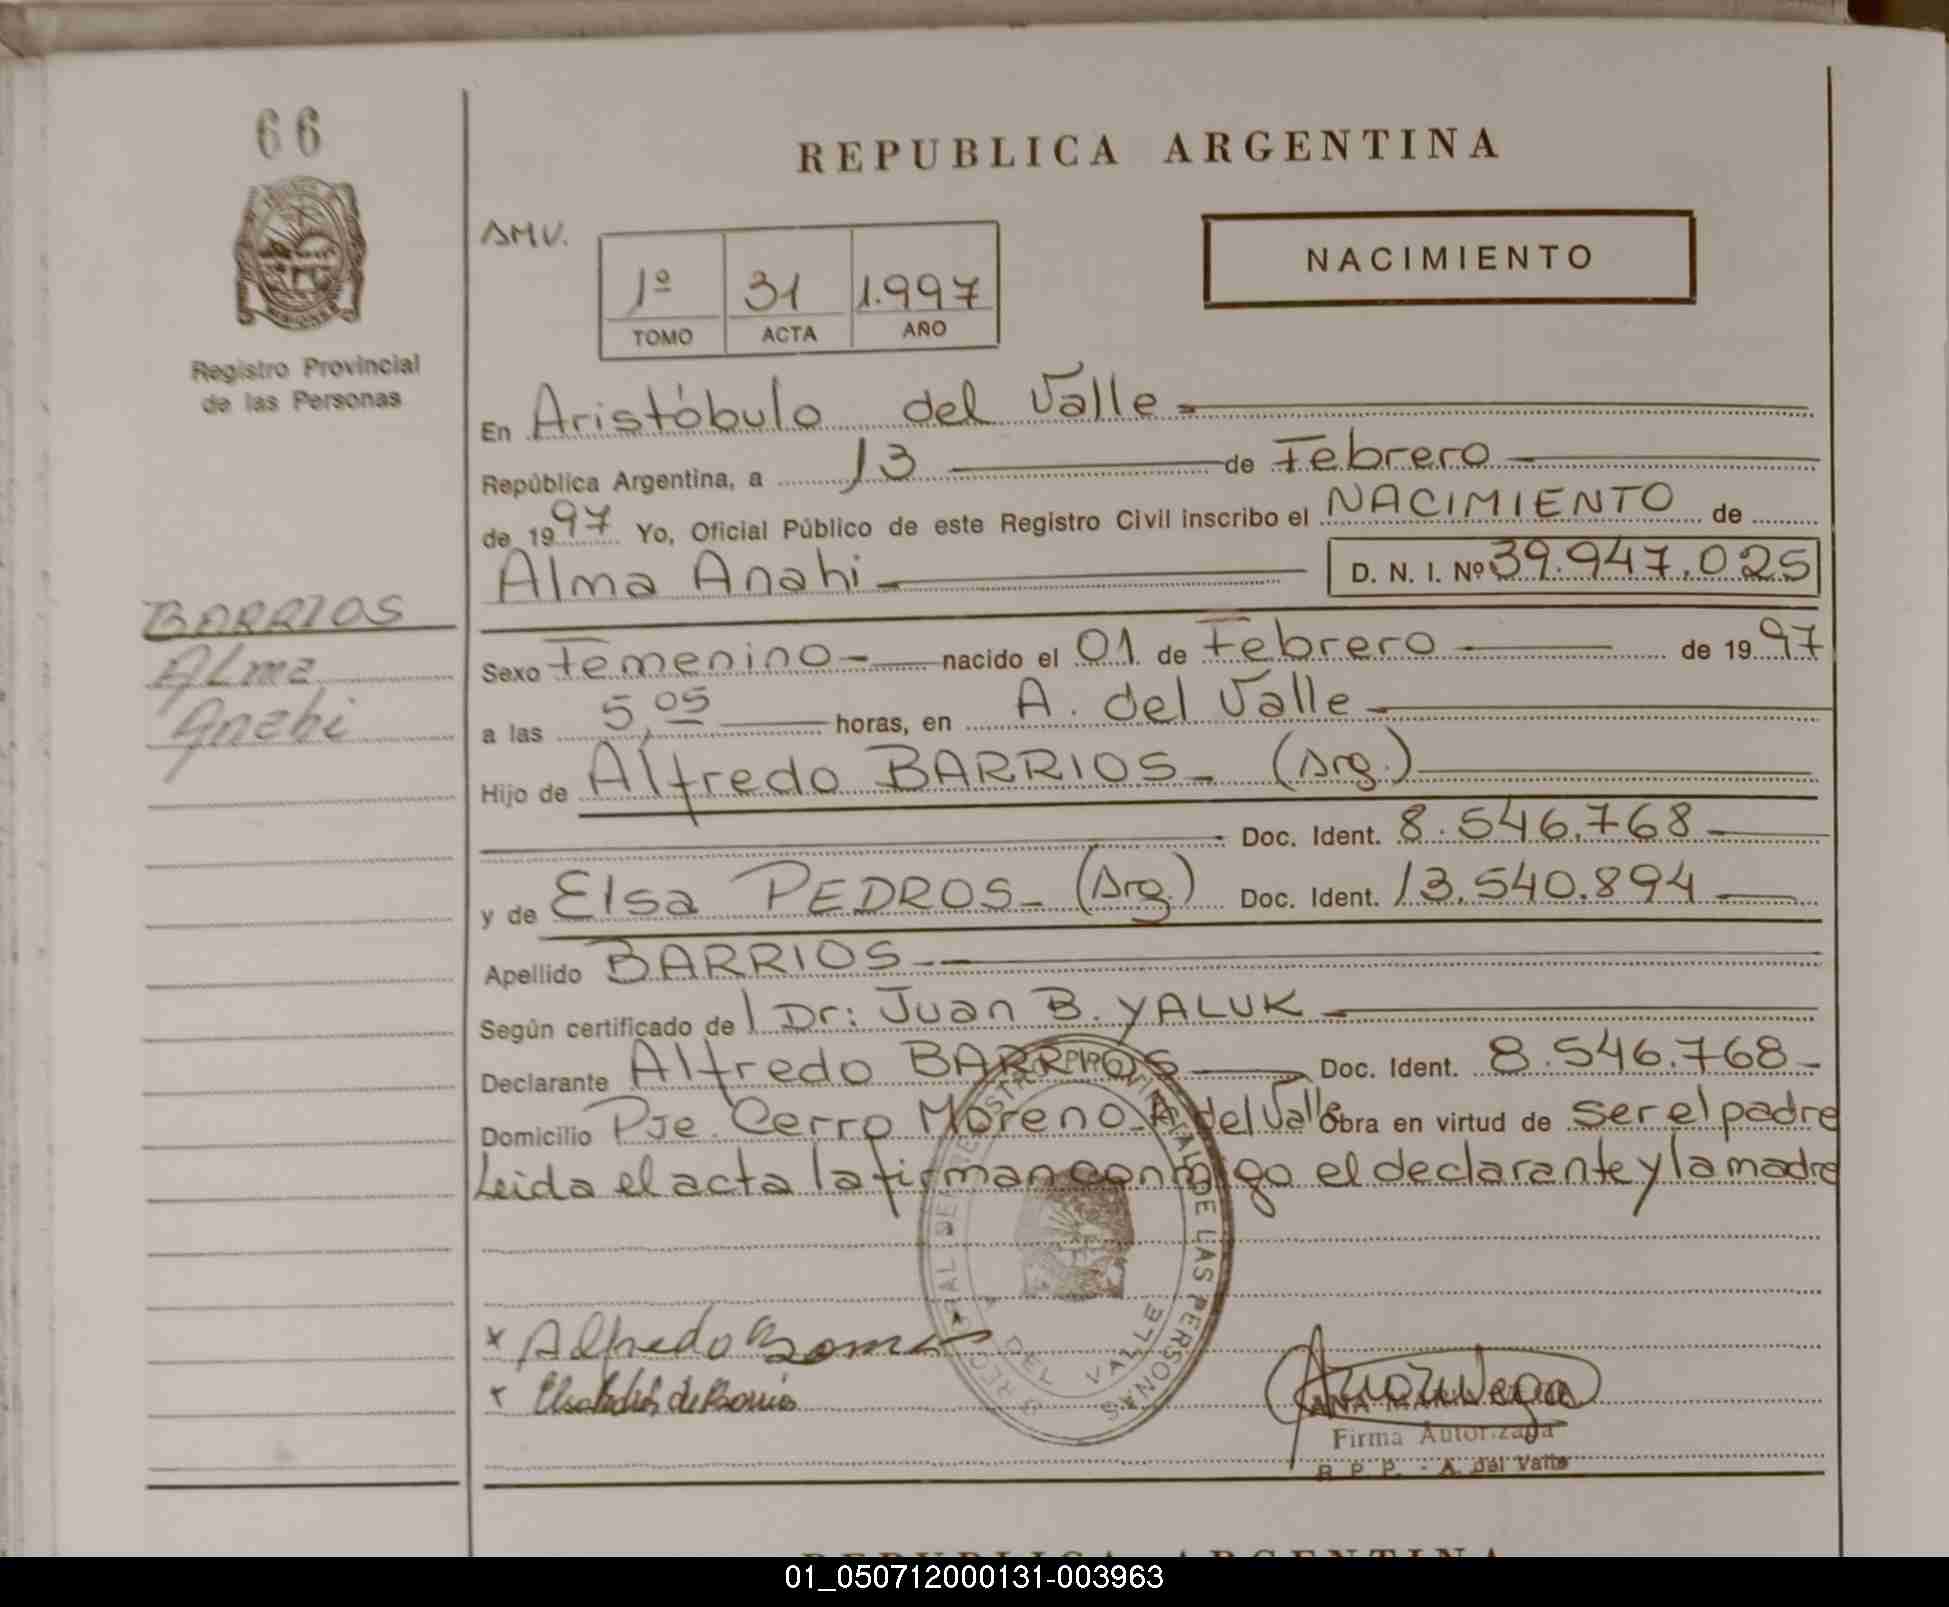 66
REPUBLICA ARGENTINA
AMV.
NACIMIENTO
1º 31 1.997
TOMO ACTA AÑO
Registro Provincial
de las Personas
En Aristóbulo del Valle
República Argentina, a 13 de Febrero
de 1997 Yo, Oficial Público de este Registro Civil inscribo el NACIMIENTO de
Alma Anahi D. N. I. Nº 39.947.025
BARRIOS
Alma
Anahi
Sexo Femenino nacido el 01 de Febrero de 1997
a las 5,05 horas, en A. del Valle
Hijo de Alfredo BARRIOS (Arg.)
Doc. Ident. 8.546.768
y de Elsa PEDROS (Arg.) Doc. Ident. 13.540.894
Apellido BARRIOS
Según certificado del Dr: Juan B. YALUK
Declarante Alfredo BARRIOS Doc. Ident. 8.546.768
Domicilio Pje. Cerro Moreno A. del Valle Obra en virtud de ser el padre
Leida el acta la firman conmigo el declarante y la madre
REGISTRO PROVINCIAL DE LAS PERSONAS
DEL VALLE
x Alfredo
x de Barrios
ANA
Firma Autorizada
R. P. P. - A. del Valle
REPUBLICA ARGENTINA
01_050712000131-003963